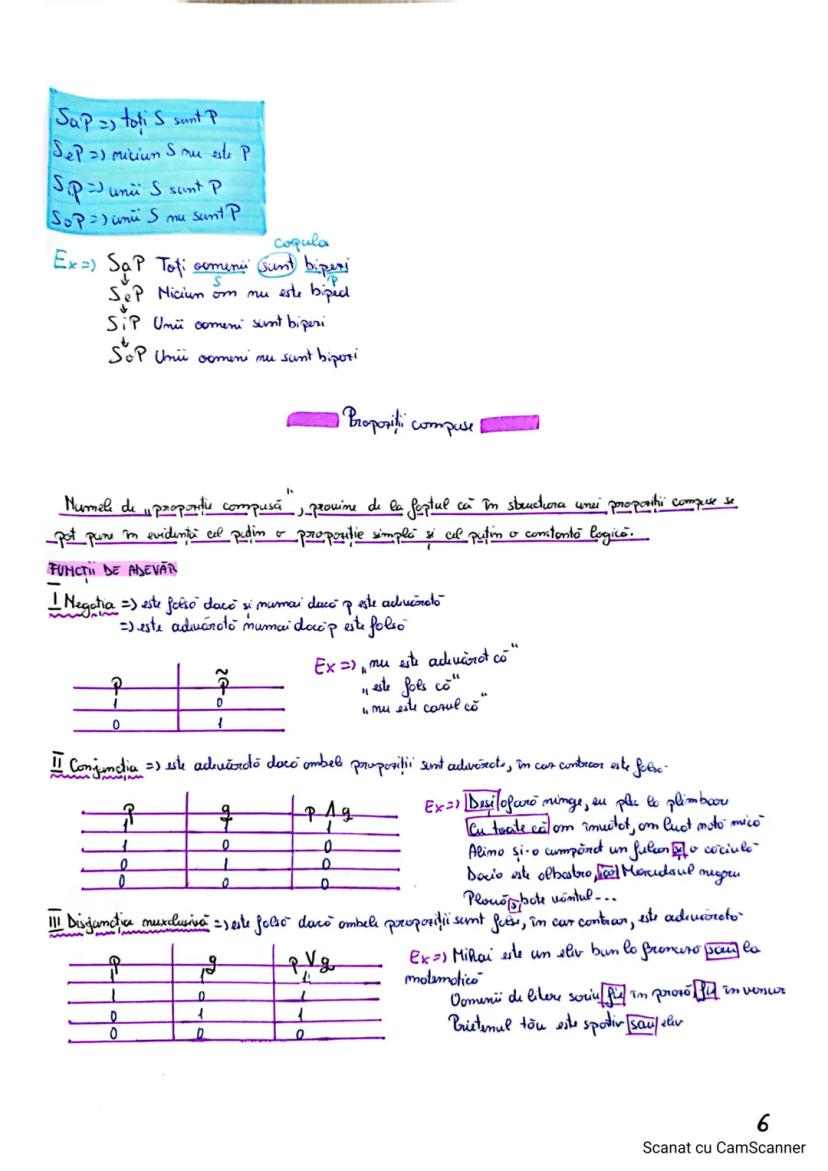 SaP => toți S sunt P
SeP => niciun S nu este P
SiP => unii S sunt P
SoP => unii S nu sunt P
copula
Ex => SaP Toți oamenii sunt bipezi
S P
SeP Niciun om nu este biped
SiP Unii oameni sunt bipezi
SoP Unii oameni nu sunt bipezi
Propoziții compuse
Numele de „propoziție compusă", provine de la faptul că în structura unei propoziții compuse se
pot pune în evidență cel puțin o propoziție simplă și cel puțin o constantă logică.
FUNCȚII DE ADEVĂR
I Negația => este falsă dacă și numai dacă p este adevărată
=> este adevărată numai dacă p este falsă
p p̃
1 0
0 1
Ex => „nu este adevărat că"
„este fals că"
„nu este cazul că"
II Conjuncția => este adevărată dacă ambele propoziții sunt adevărate, în caz contrar este falsă.
p q p Λ q
1 1 1
1 0 0
0 1 0
0 0 0
Ex => Deși afară ninge, eu plec la plimbare
Cu toate că am învățat, am luat notă mică
Alina și-a cumpărat un fular și o căciulă
Dacia este albastră, iar Mercedesul negru
Plouă și bate vântul...
III Disjuncția neexclusivă => este falsă dacă ambele propoziții sunt false, în caz contrar, este adevărată
p q p V q
1 1 1
1 0 1
0 1 1
0 0 0
Ex => Mihai este un elev bun la franceză sau la
matematică
Oamenii de litere scriu fie în proză, fie în versuri
Prietenul tău este sportiv sau elev
6
Scanat cu CamScanner